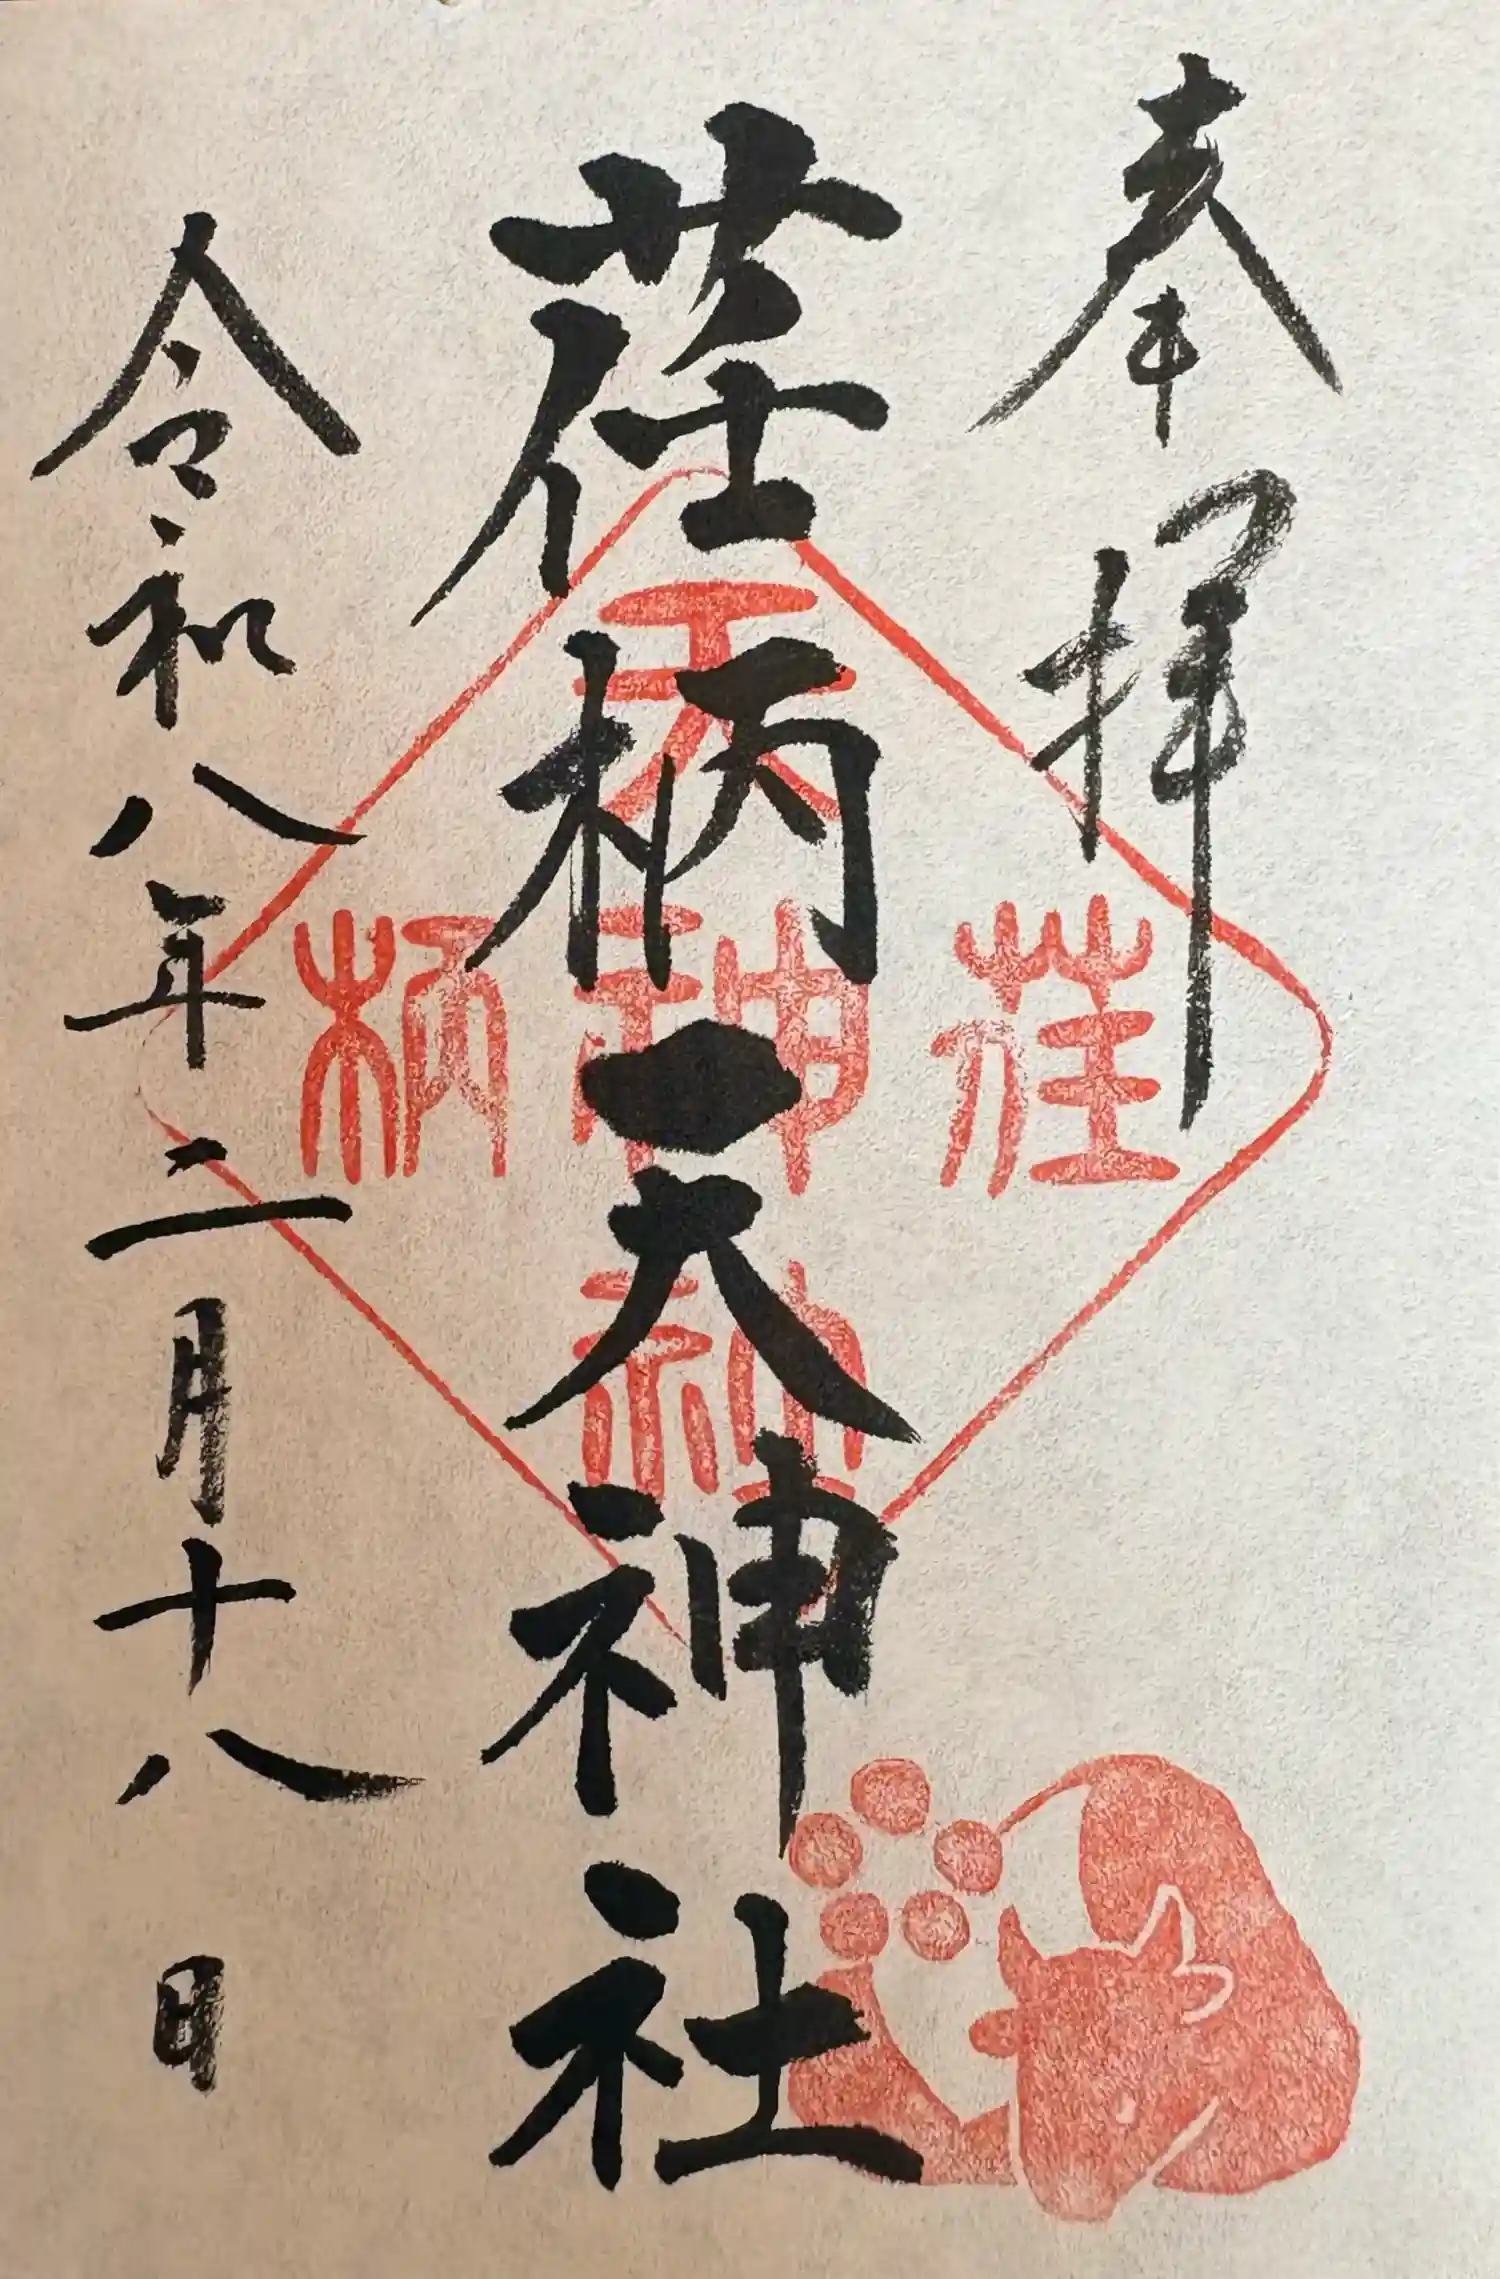 奉拝
荏柄天神社
令和八年二月十八日
荏
天神社
柄